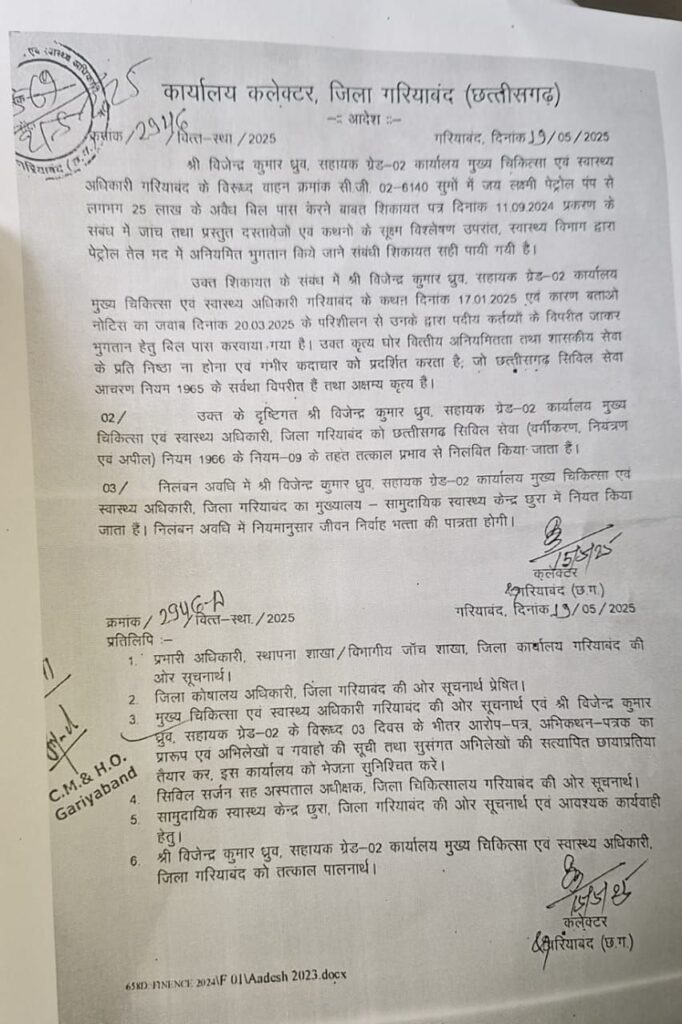 कार्यालय कलेक्टर, जिला गरियाबंद (छत्तीसगढ़)
-:: आदेश ::-
क्रमांक / 2946 /वित्त-स्था /2025 गरियाबंद, दिनांक 19/05/2025
श्री विजेन्द्र कुमार ध्रुव, सहायक ग्रेड-02 कार्यालय मुख्य चिकित्सा एवं स्वास्थ्य
अधिकारी गरियाबंद के विरूध्द वाहन क्रमांक सी.जी. 02-6140 सुगों में जय लक्ष्मी पेट्रोल पंप से
लगभग 25 लाख के अवैध बिल पास करने बाबत शिकायत पत्र दिनांक 11.09.2024 प्रकरण के
संबंध में जांच तथा प्रस्तुत दस्तावेजों एवं कथनो के सूक्ष्म विश्लेषण उपरांत, स्वास्थ्य विभाग द्वारा
पेट्रोल तेल मद में अनियमित भुगतान किये जाने संबंधी शिकायत सही पायी गयी है।
उक्त शिकायत के संबंध में श्री विजेन्द्र कुमार ध्रुव, सहायक ग्रेड-02 कार्यालय
मुख्य चिकित्सा एवं स्वास्थ्य अधिकारी गरियाबंद के कथन दिनांक 17.01.2025 एवं कारण बताओ
नोटिस का जवाब दिनांक 20.03.2025 के परिशीलन से उनके द्वारा पदीय कर्तव्यों के विपरीत जाकर
भुगतान हेतु बिल पास करवाया गया है। उक्त कृत्य घोर वित्तीय अनियमितता तथा शासकीय सेवा
के प्रति निष्ठा ना होना एवं गंभीर कदाचार को प्रदर्शित करता है; जो छत्तीसगढ़ सिविल सेवा
आचरण नियम 1965 के सर्वथा विपरीत हैं तथा अक्षम्य कृत्य है।
02/ उक्त के दृष्टिगत श्री विजेन्द्र कुमार ध्रुव, सहायक ग्रेड-02 कार्यालय मुख्य
चिकित्सा एवं स्वास्थ्य अधिकारी, जिला गरियाबंद को छत्तीसगढ़ सिविल सेवा (वर्गीकरण, नियंत्रण
एव अपील) नियम 1966 के नियम-09 के तहत तत्काल प्रभाव से निलंबित किया जाता हैं।
03/ निलंबन अवधि में श्री विजेन्द्र कुमार ध्रुव, सहायक ग्रेड-02 कार्यालय मुख्य चिकित्सा एवं
स्वास्थ्य अधिकारी, जिला गरियाबंद का मुख्यालय - सामुदायिक स्वास्थ्य केन्द्र छुरा में नियत किया
जाता हैं। निलंबन अवधि में नियमानुसार जीवन निर्वाह भत्ता की पात्रता होगी।
15/5/25
कलेक्टर
गरियाबंद (छ.ग.)
क्रमांक / 2946-A /वित्त-स्था. /2025 गरियाबंद, दिनांक 19/05/2025
प्रतिलिपि :-
1. प्रभारी अधिकारी, स्थापना शाखा/विभागीय जॉच शाखा, जिला कार्यालय गरियाबंद की
ओर सूचनार्थ।
2. जिला कोषालय अधिकारी, जिला गरियाबंद की ओर सूचनार्थ प्रेषित।
3. मुख्य चिकित्सा एवं स्वास्थ्य अधिकारी गरियाबंद की ओर सूचनार्थ एवं श्री विजेन्द्र कुमार
ध्रुव, सहायक ग्रेड-02 के विरूध्द 03 दिवस के भीतर आरोप-पत्र, अभिकथन-पत्रक का
प्रारूप एवं अभिलेखों व गवाहो की सूची तथा सुसंगत अभिलेखों की सत्यापित छायाप्रतिया
तैयार कर, इस कार्यालय को भेजना सुनिश्चित करे।
C.M.& H.O.
Gariyaband
4. सिविल सर्जन सह अस्पताल अधीक्षक, जिला चिकित्सालय गरियाबंद की ओर सूचनार्थ।
5. सामुदायिक स्वास्थ्य केन्द्र छुरा, जिला गरियाबंद की ओर सूचनार्थ एवं आवश्यक कार्यवाही
हेतु।
6. श्री विजेन्द्र कुमार ध्रुव, सहायक ग्रेड-02 कार्यालय मुख्य चिकित्सा एवं स्वास्थ्य अधिकारी,
जिला गरियाबंद को तत्काल पालनार्थ।
15/5/25
कलेक्टर
गरियाबंद (छ.ग.)
658D. FINENCE 2024\F 01\Aadesh 2023.docx